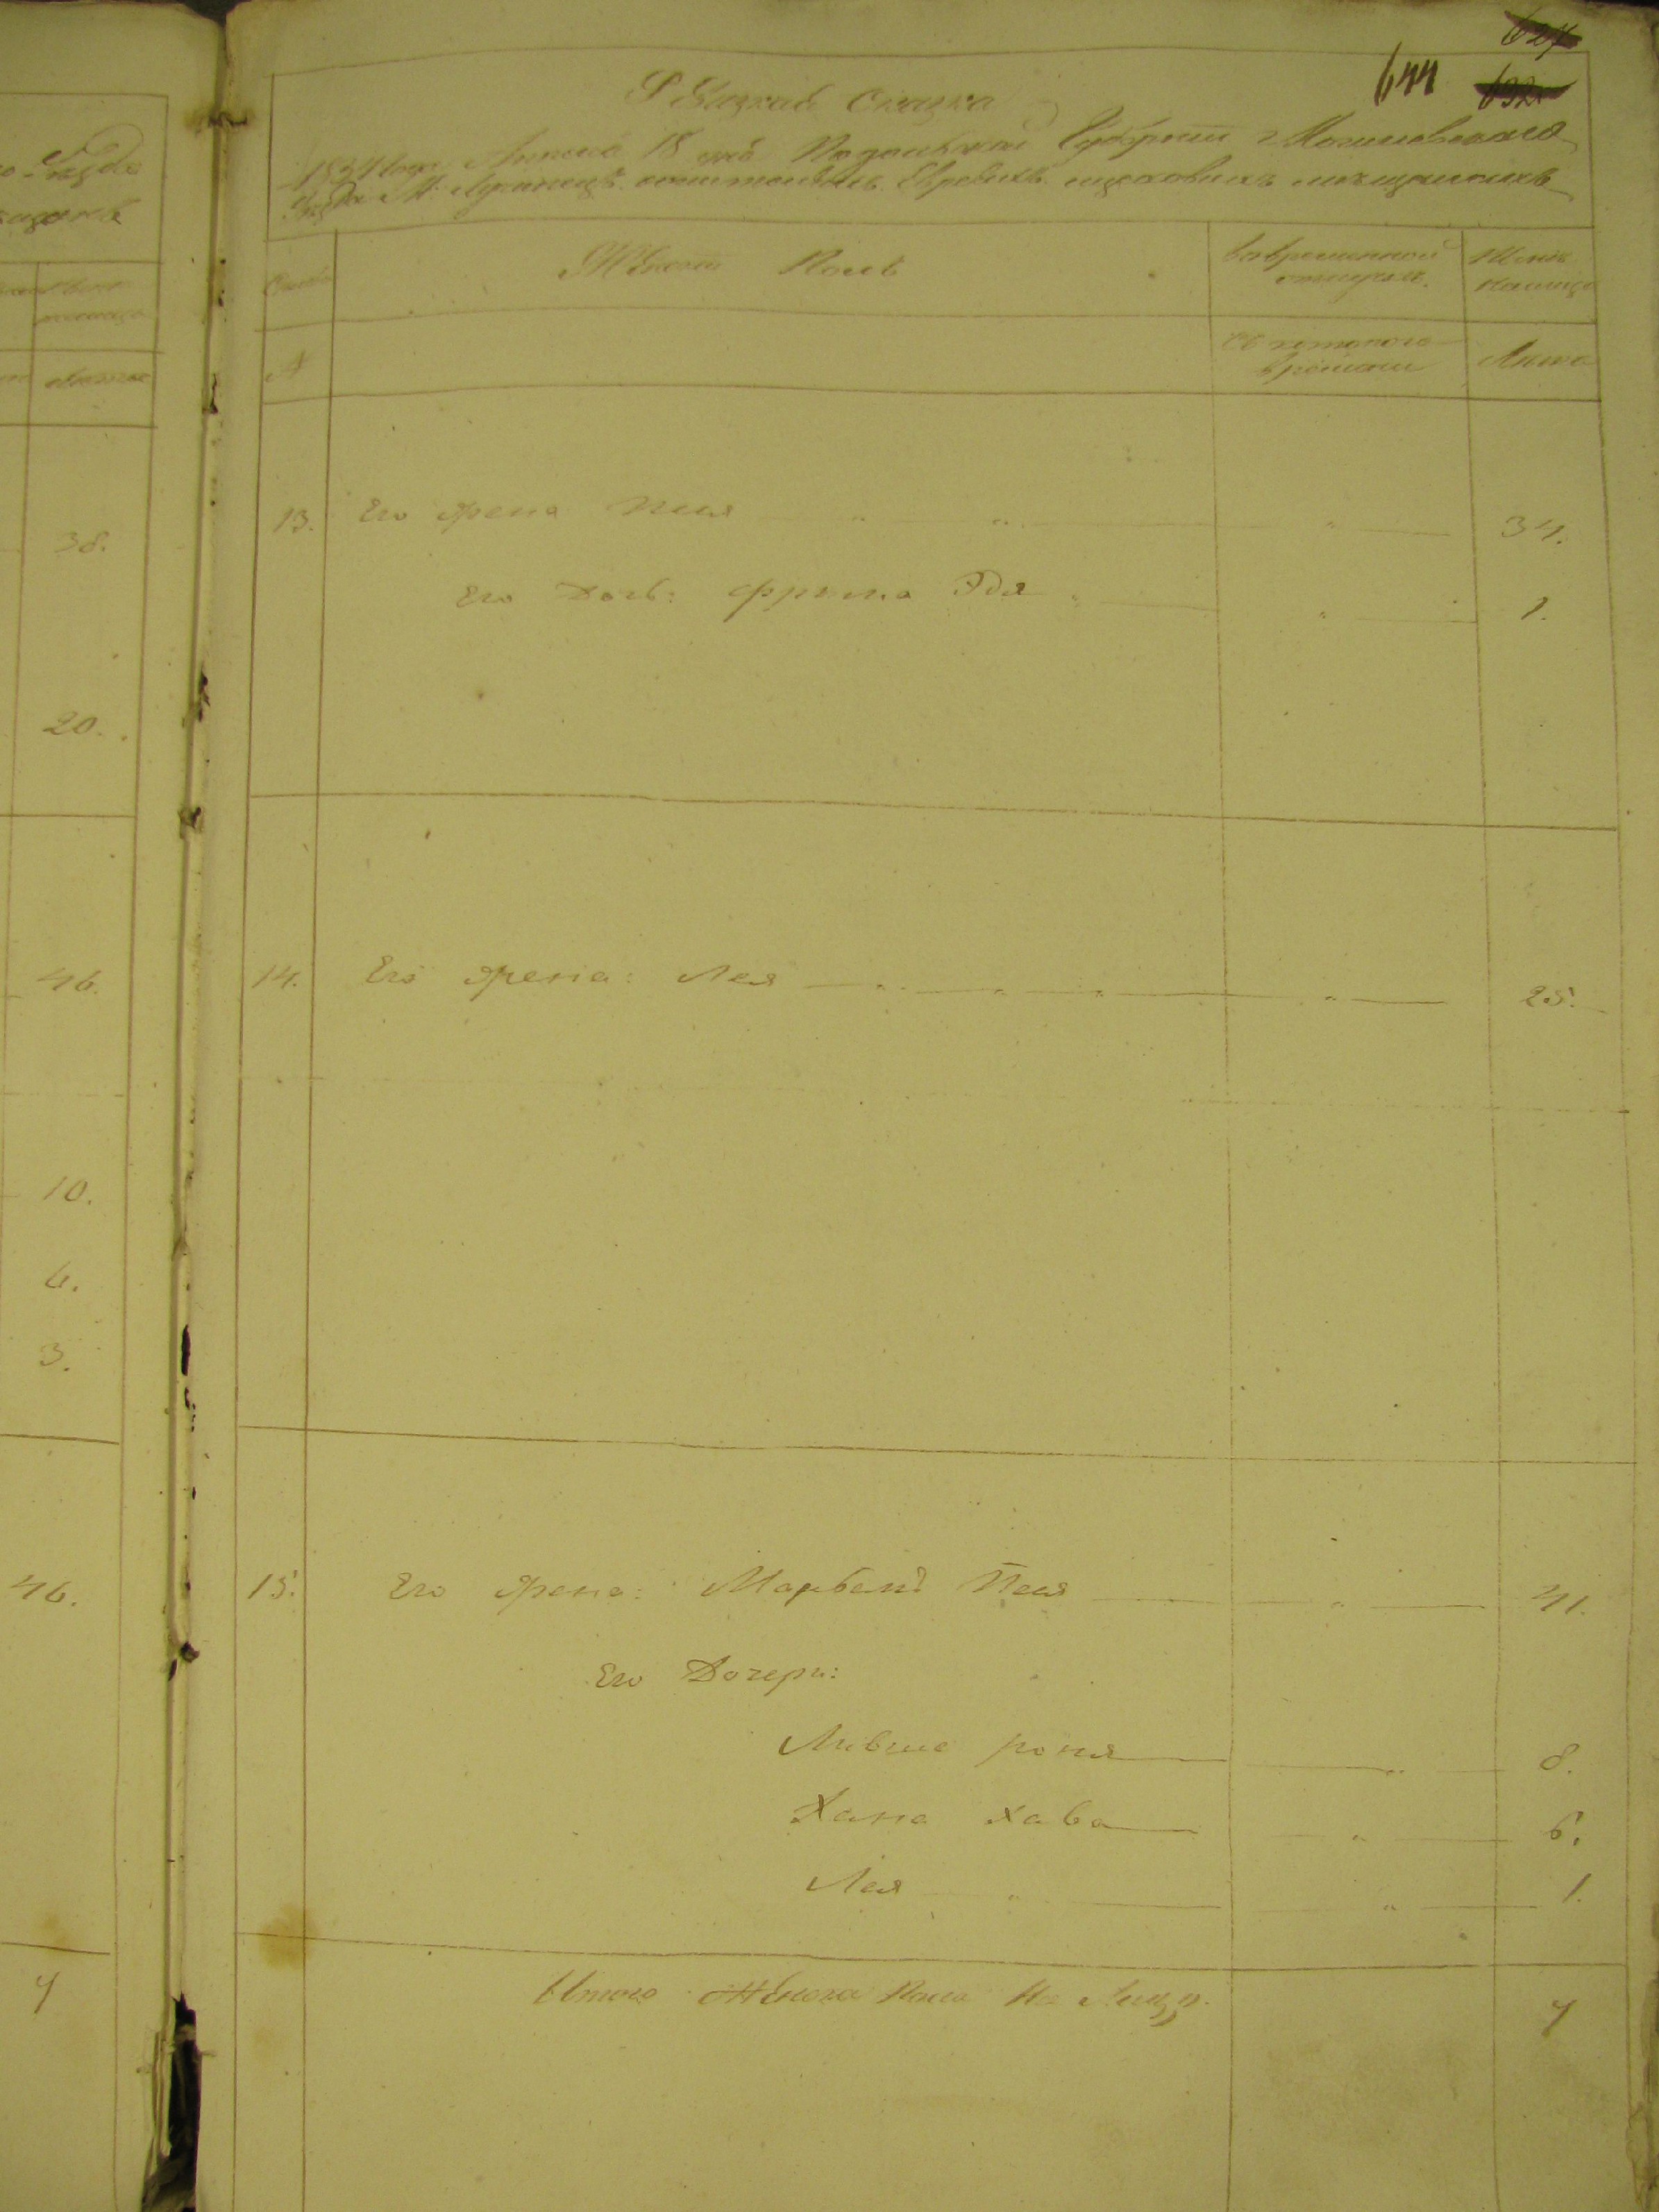 627
644 632
Ревизкая Сказка
1834 года Апреля 18 дня Подольской Губернии Могилевского
Уезда М. Лучинец состоящихъ Евреевъ мещанскихъ
Женской Полъ
во временной отлучке
Ныне на лицо
№
Съ которого времени
Лета
13. Его жена Песя " " " 34.
Его Дочь: Фрыма Эдя " " 1.
14. Его жена: Лея " " " " 25.
15. Его жена: Марьемъ Песя " 41.
Его Дочери:
Ливша роня " 8.
Хана хава " 6.
Лея " " 1.
Итого Женска Пола На Лицо. 7
38.
20.
46.
10.
6.
3.
46.
7